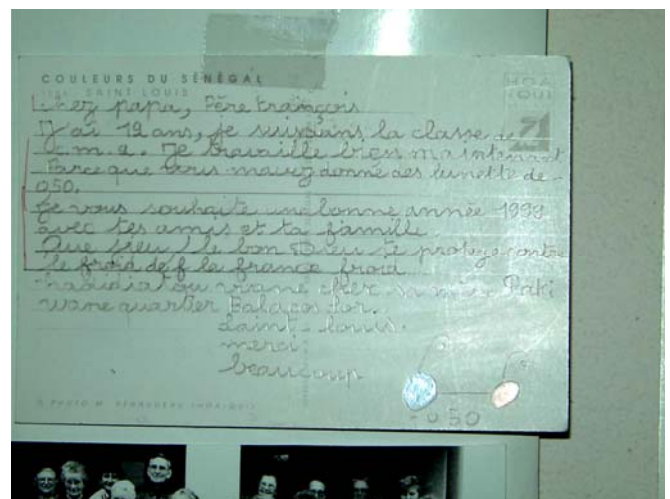 COULEURS DU SÉNÉGAL
SAINT LOUIS
HOA
QUI
Cher papa, Père François
J'ai 12 ans, je suis dans la classe de
c.m.2. Je travaille bien maintenant
Parce que vous mavez donné des lunette de -
0,50.
Je vous souhaite une bonne année 1999
avec tes amis et ta famille.
Que le bon Dieu te protege contre
le froid de la france froid
chez sa mère Paki
wane quartier Balacos
Saint-louis.
merci
beaucoup
-0 50
© PHOTO M. RENAUDEAU-HOA-QUI